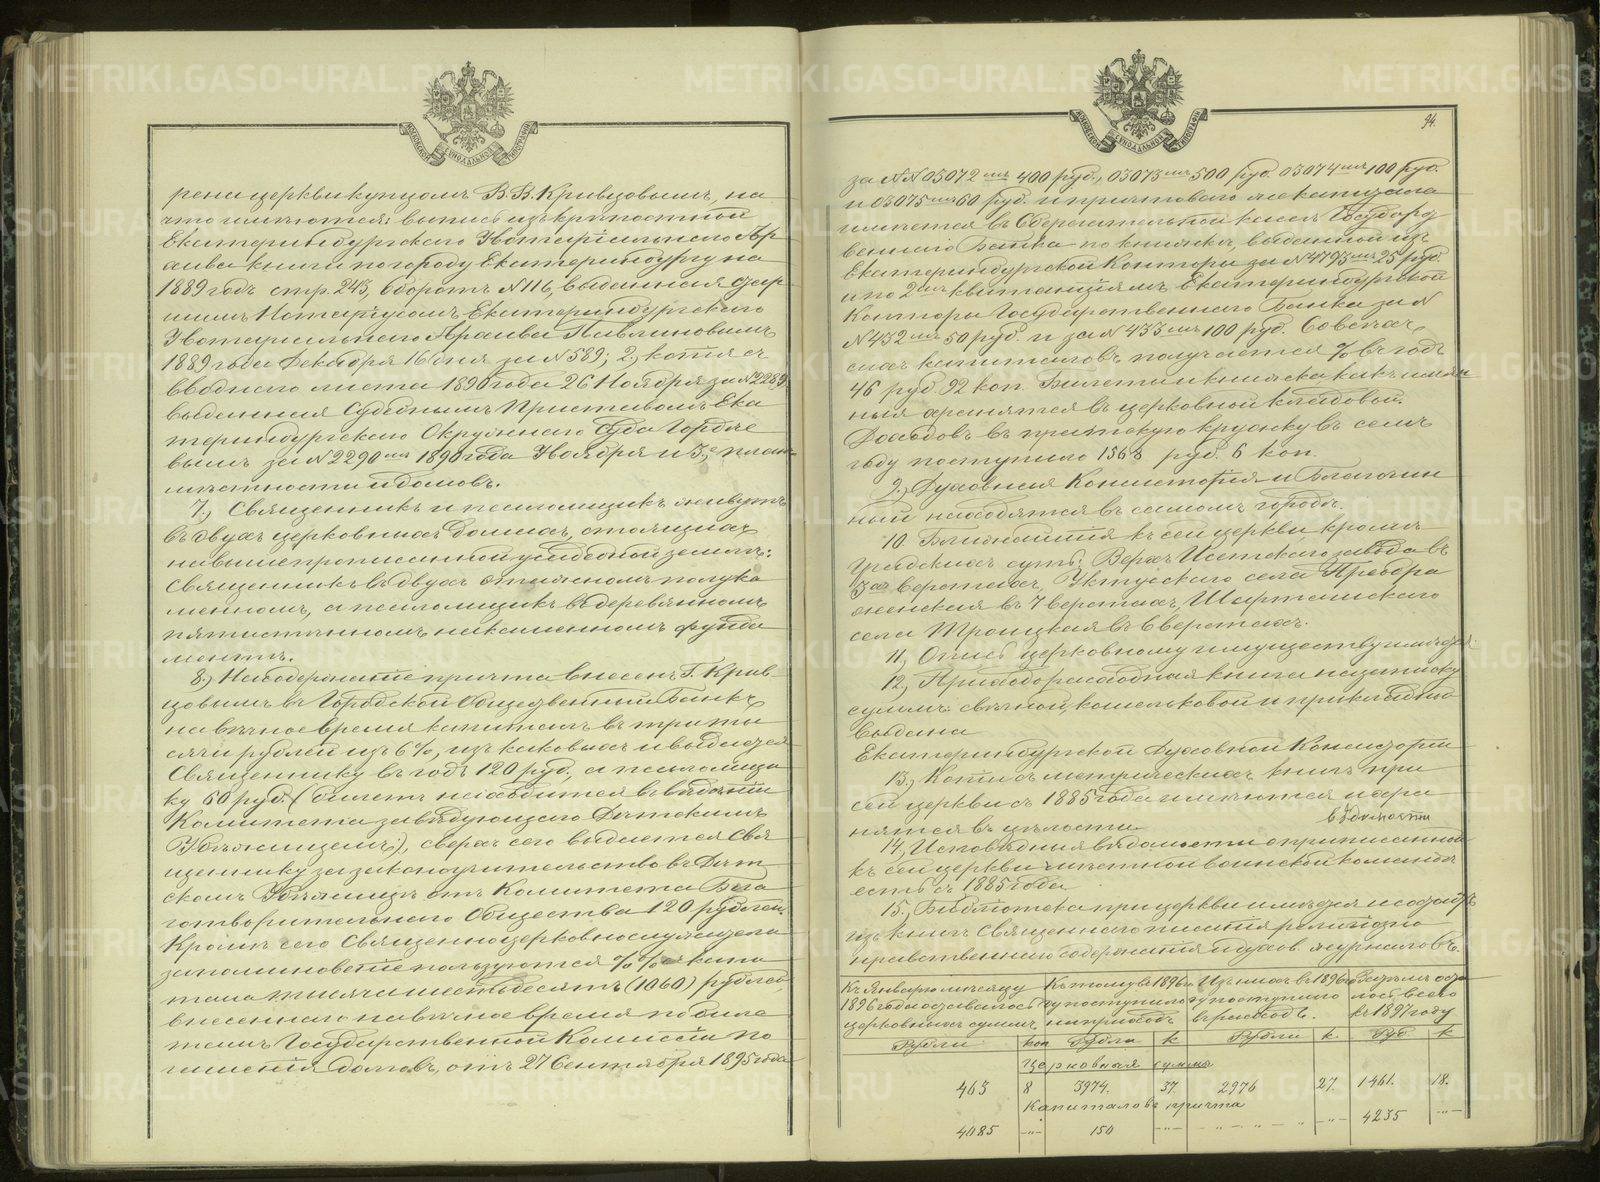 рена церкви купцомъ В. В. Кривцовымъ, на
что имѣются: выпись изъ крѣпостной
Екатеринбургскаго Нотаріальнаго Ар
хива книги по городу Екатеринбургу на
1889 годъ стр. 243, оборотъ № 116, выданная Стар
шимъ Нотаріусомъ Екатеринбургскаго
Нотаріальнаго Архива Павлиновымъ
1889 года Декабря 16 дня за № 589; 2, копія съ
вводнаго листа 1890 года 26 Ноября за № 2289,
выданная Судебнымъ Приставомъ Ека
теринбургскаго Окружнаго Суда Гордѣе
вымъ за № 2290мъ 1890 года Ноября и 3, планъ
мѣстности и домовъ.
7., Священникъ и псаломщикъ живутъ
въ двухъ церковныхъ домахъ, стоящихъ
на вышепрописанной усадебной землѣ:
Священникъ въ двухъ этажномъ полука
менномъ, а псаломщикъ въ деревянномъ
пятистѣнномъ на каменномъ фунда
ментѣ.
8., На содержаніе причта внесенъ Г. Крив
цовымъ въ Городской Общественный Банкъ
на вѣчное время капиталъ въ три ты
сячи рублей изъ 6%, изъ каковыхъ и выдается
Священнику въ годъ 120 руб., а псаломщи
ку 60 руб. (билетъ находится въ вѣдѣніи
Комитета завѣдующаго Дѣтскимъ
Убѣжищемъ), сверхъ сего выдается Свя
щеннику за законоучительство въ Дѣт
скомъ Убѣжищѣ отъ Комитета Бла
готворительнаго Общества 120 рублей.
Кромѣ сего Священноцерковнослужители
за поминовеніе пользуются %% съ капи
тала тысяча шестьдесятъ (1060) рублей,
внесеннаго на вѣчное время по биле
тамъ Государственной Комиссіи по
гашенія долговъ, отъ 27 Сентября 1895 года
94.
за №№ 03072мъ 400 руб., 03073мъ 500 руб. 03074мъ 100 руб.
и 03075мъ 60 руб. и причтоваго же капитала
имѣется въ Сберегательной кассѣ Государ
веннаго Банка по книжкѣ, выданной изъ
Екатеринбургской Конторы за № 4793мъ 25 руб.
и по 2мъ квитанціямъ Екатеринбургской
Конторы Государственнаго Банка за №
№ 432мъ 50 руб. и за № 433мъ 100 руб. Со всѣхъ
сихъ капиталовъ получается % въ годъ
46 руб 92 коп. Билеты и книжка какъ имян
ныя хранятся въ церковной кладовой.
Доходовъ въ притскую кружку въ семъ
году поступило 1368 руб. 6 коп.
9., Духовная Консисторія и Благочин
ный находятся въ самомъ городѣ.
10. Ближайшія къ сей церкви кромѣ
градскихъ суть: Верхъ Исетскаго завода въ
3хъ верстахъ, Уктусскаго села Преобра
женская въ 7 верстахъ, Шарташскаго
села Троицкая въ 6 верстахъ.
11., Опись церковному имуществу имѣется.
12., Приходорасходная книга на записку
суммъ: свѣчной, кошельковой и прикладной
выдана
Екатеринбургской Духовной Консисторіи
13., Копіи съ метрическихъ книгъ при
сей церкви съ 1885 года имѣются и хра
нятся въ цѣлости
вѣдомости
14, Исповѣдныя вѣдомости о приписанной
къ сей церкви мѣстной воинской командѣ
есть съ 1885 года
15., Библіотека при церкви имѣется и состоитъ
изъ книгъ Священнаго писанія религіозно
нравственнаго содержанія и духов. журналовъ.
Къ Январю мѣсяцу 1896 года оставалось церковныхъ суммъ
Къ тому въ 1896 году поступило на приходъ
Изъ нихъ въ 1896 году поступило въ расходъ.
Затѣмъ оста лось всего къ 1897 году
Рубли коп Рубли к Рубли к. Руб к
Церковная сумма
463 8 3974. 37. 2976 27. 1461. 18.
Капиталовъ причта
4085 -"- 150 -"- -"- -"- 4235 -"-